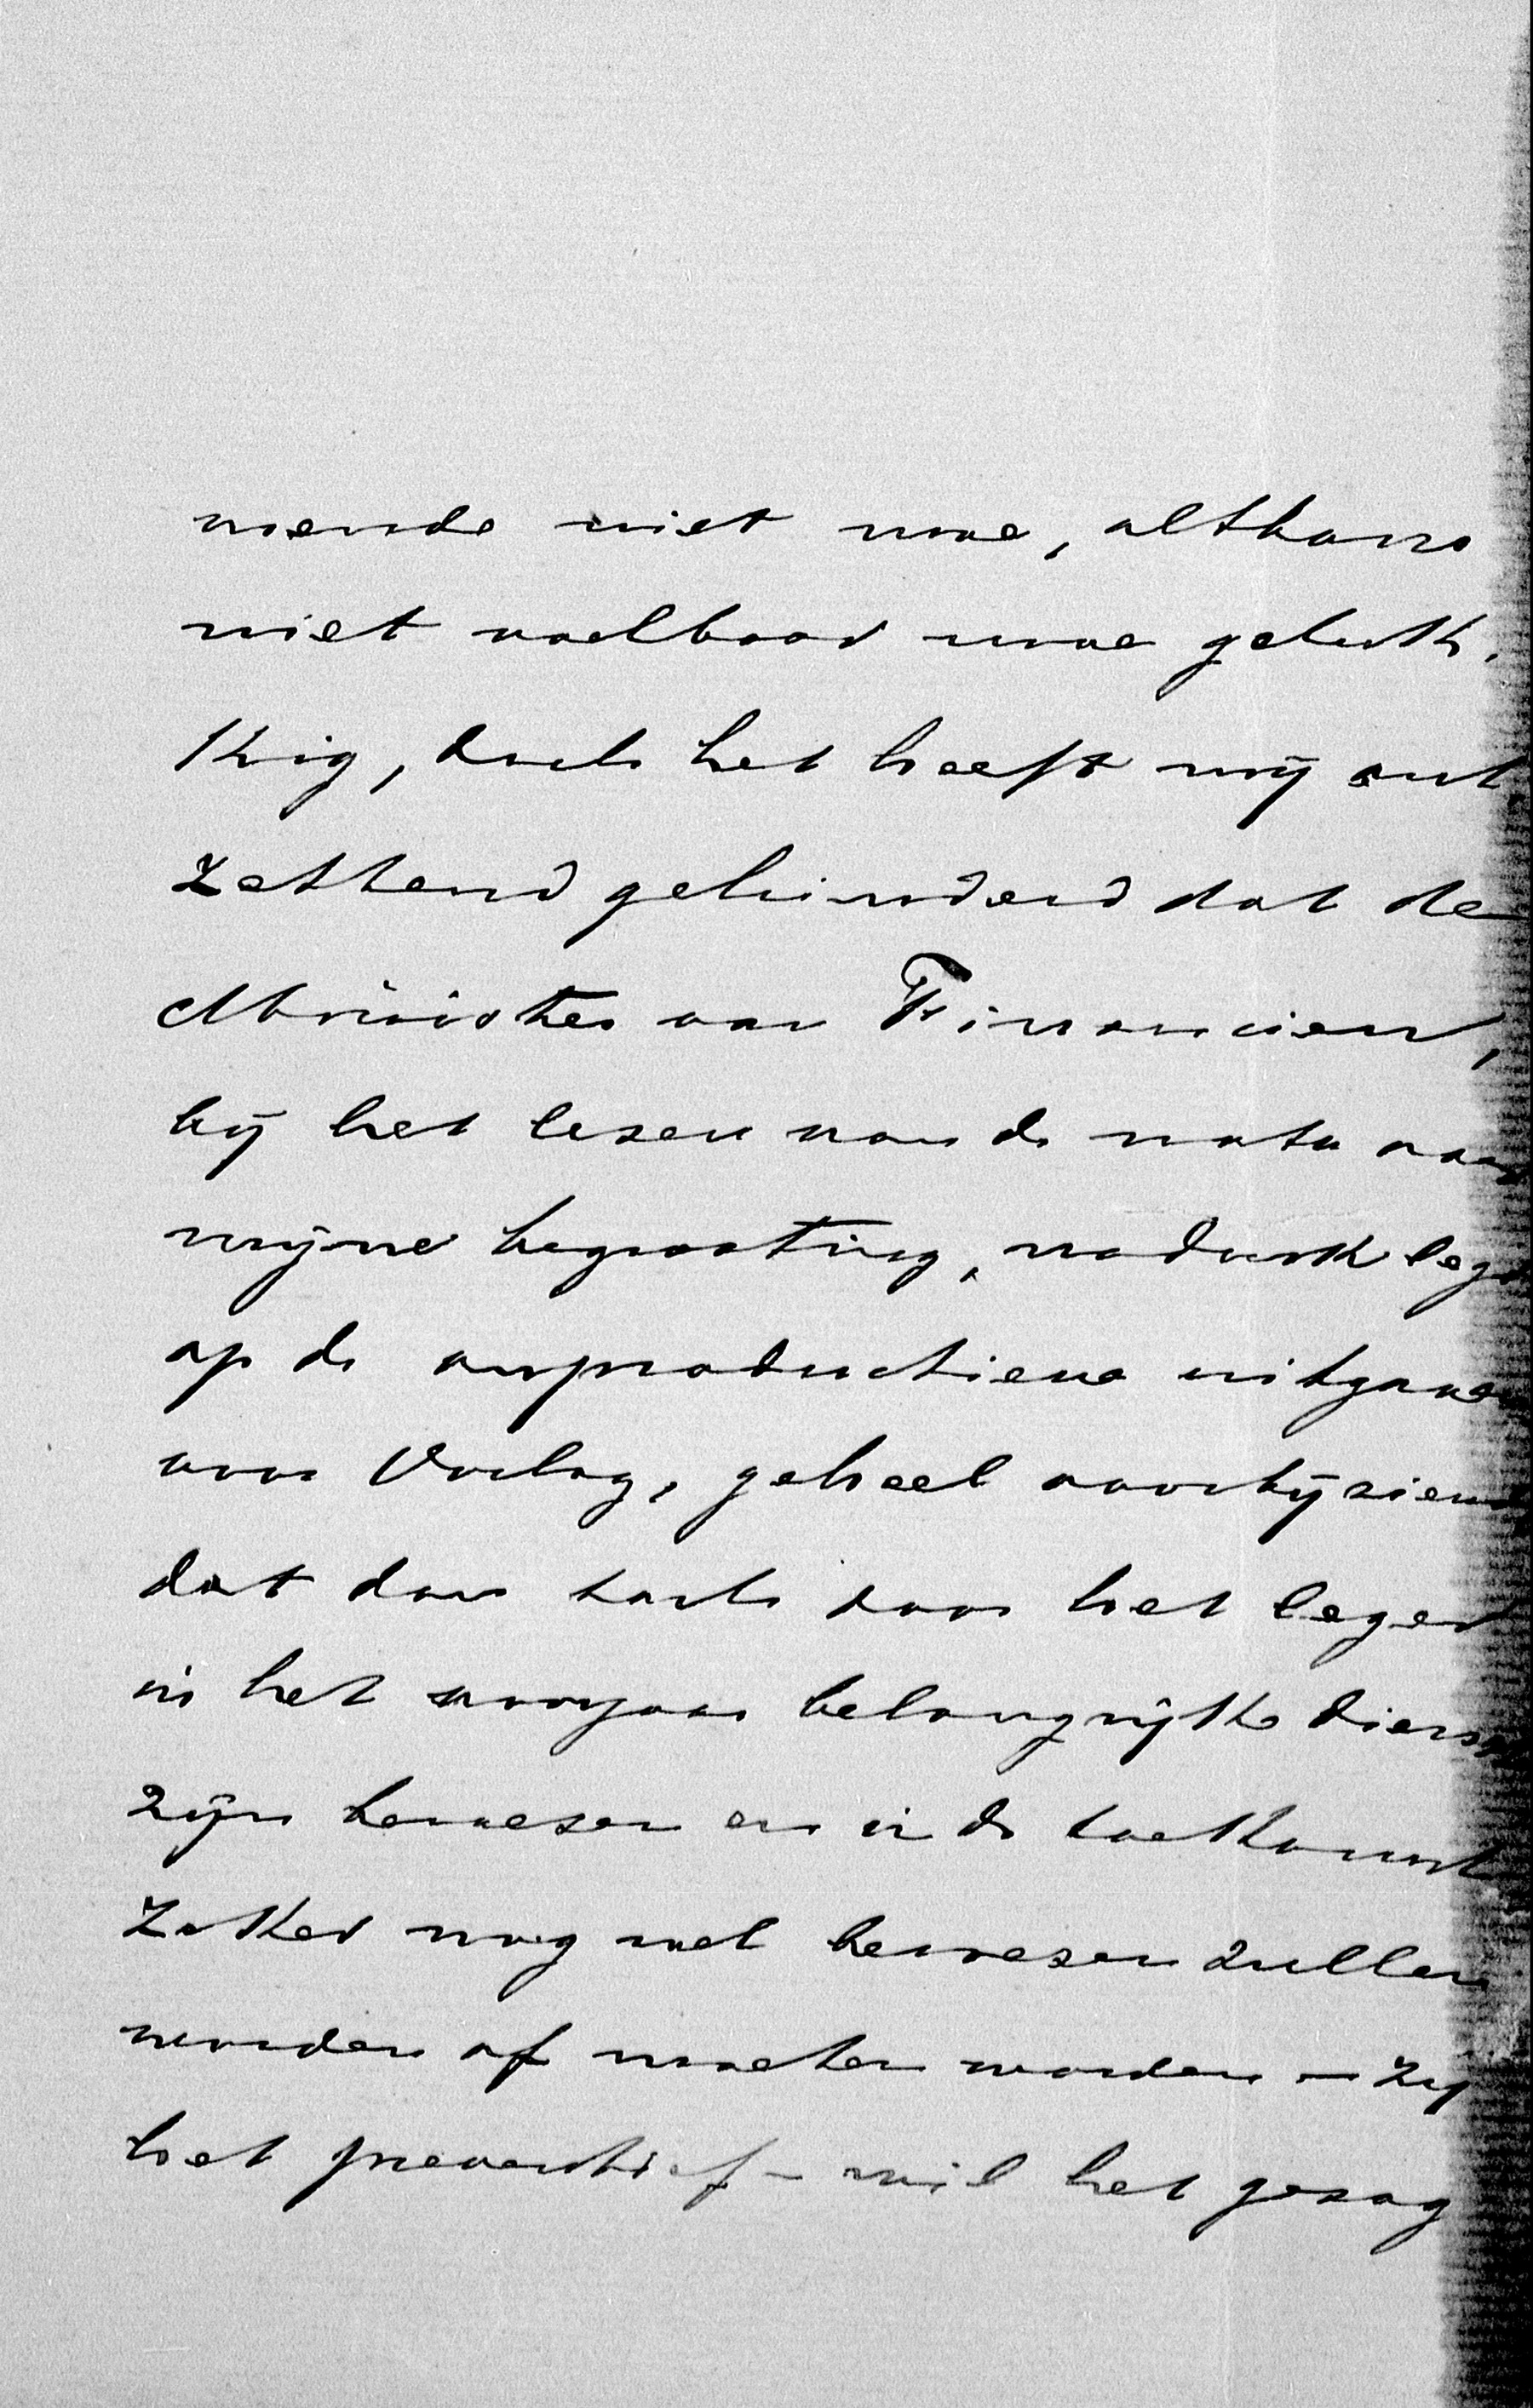 moende niet mee, althans
niet voelbaar mee geluk.
kig, doch het heeft mij ont.
zettend gehinderd dat de
Minister van Financien,
bij het lezen van de nota van
mijne begrooting, nadruk legt
op de onproductieve uitgaven
voor Oorlog, geheel voorbijziend
dat dan toch door het leger
in het voorjaar belangrijke diensten
zijn bewezen en in de toekomst
zeker nog wel bewezen zullen
worden of moeten worden – zij
het preventief – wil het gezag